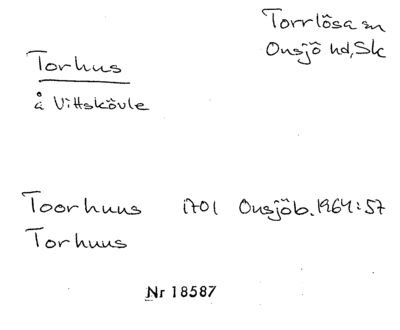 Torrlösa sn
Onsjö hd, Sk
Torhus
å Vittskövle
Toorhuus 1701 Onsjöb. 1964:57
Torhuus
Nr 18587